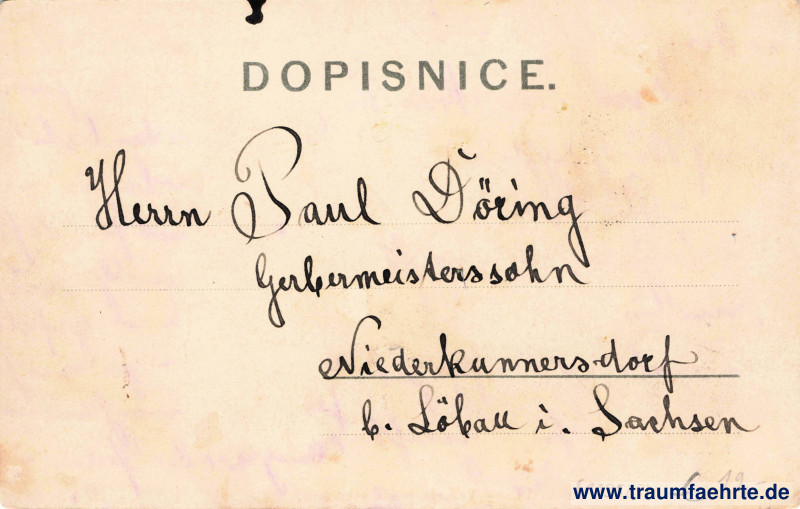 DOPISNICE.
Herrn Paul Döring
Gerbermeisterssohn
Niederkunnersdorf
b. Löbau i. Sachsen
19.-
www.traumfaehrte.de